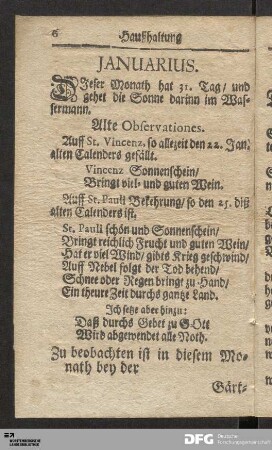 6 Haußhaltung
JANUARIUS.
DIeser Monath hat 31. Tag/ und
gehet die Sonne darinn im Was-
sermann.
Alte Observationes.
Auff St. Vincenz, so allezeit den 22. Jan.
alten Calenders gefällt.
Vincenz Sonnenschein/
Bringt viel- und guten Wein.
Auff St. Pauli Bekehrung/ so den 25. diß
alten Calenders ist.
St. Pauli schön und Sonnenschein/
Bringt reichlich Frucht und guten Wein/
Hat er viel Wind/ gibts Krieg geschwind/
Auff Nebel folgt der Tod behend/
Schnee oder Regen bringt zu Hand/
Ein theure Zeit durchs gantze Land.
Ich setze aber hinzu:
Daß durchs Gebet zu GOtt
Wird abgewendet alle Noth.
Zu beobachten ist in diesem Mo-
nath bey der
Gärt-
DFG Deutsche
Forschungsgemeinschaft